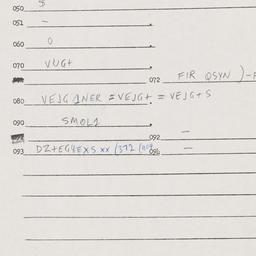 050 $
051 –
060 0
070 VUGt
072 FIR QSYN )-F
080 VEJG 1NER = VEJGt = VEJGtS
090 SMOL1
092 –
093 DZtEG4EXS xx (372